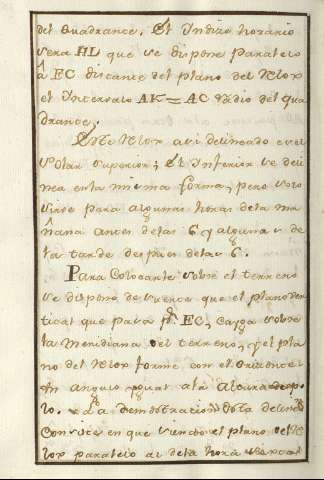 del Quadrante. El Yndize horario
sera HL que se dispone paralelo
â EC distante del plano del Relox
el Yntervalo AK = AC radio del qua
drante.
Este Relox asi delineado es el
Polar Superior; El Ynferior se deli
nea en la misma forma, pero solo
sirve para algunas horas de la ma
ñana antes de las 6 y algunas de
la tarde despues de las 6.
Para Colocarle sobre el terreno
se dispone de suerte que el plano Ver
tical que pasa pr. EC, Cayga sobre
la Meridiana del terreno, y el pla
no del Relox forme con el Orizonte
un angulo ygual a la Altura de po
lo. La demostracion de
Conciste en que siendo el plano del Re
lox paralelo al de la hora